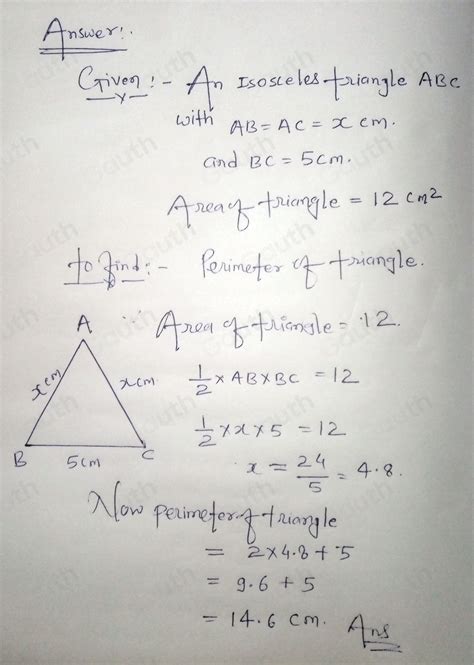 Answer:.
Given :- An Isosceles triangle ABC
with AB = AC = x cm.
and BC = 5cm.
Area of triangle = 12 cm²
to find :- Perimeter of triangle.
A
∵ Area of triangle = 12.
x cm
x cm
1/2 × AB × BC = 12
1/2 × x × 5 = 12
B
5cm
C
x = 24/5 = 4.8.
Now perimeter of triangle
= 2×4.8 + 5
= 9.6 + 5
= 14.6 cm. Ans